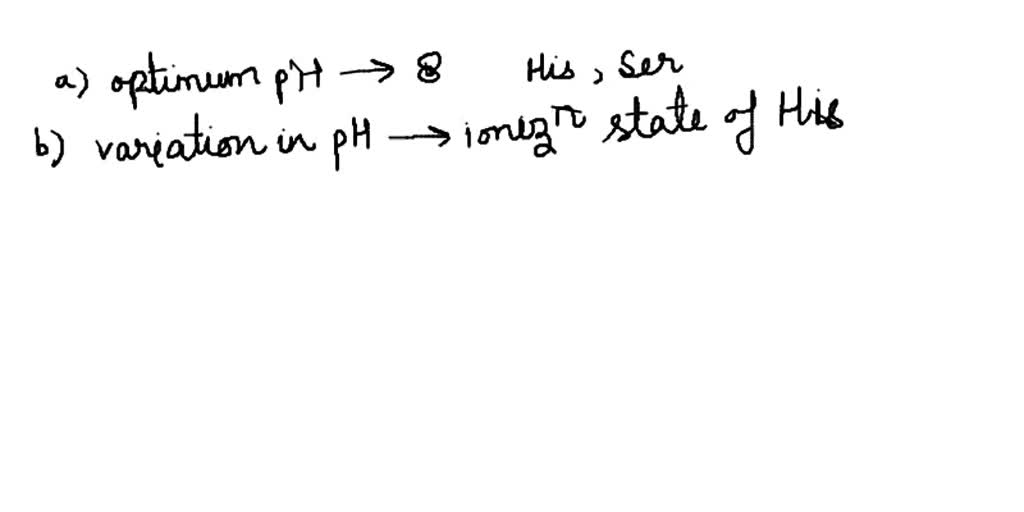 a) optimum pH → 8 His, Ser
b) variation in pH → ionizⁿ state of His